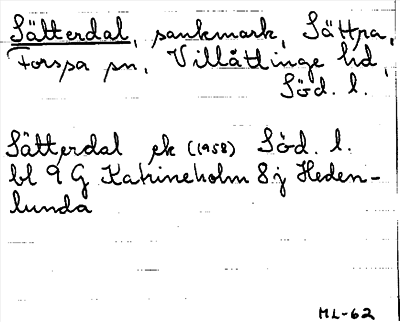 Sätterdal, sankmark, Sättra,
Forssa sn, Villåttinge hd,
Söd. l.
Sätterdal ek (1958) Söd. l.
bl 9 G Katrineholm 8 j Heden-
lunda
ML-62